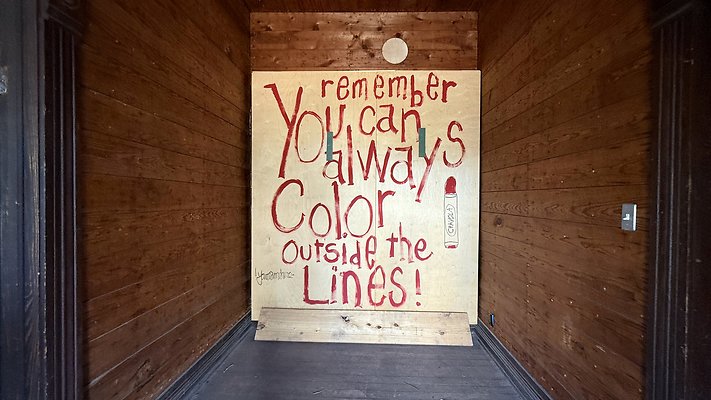 remember
You can
always
Color
outside the
Lines!